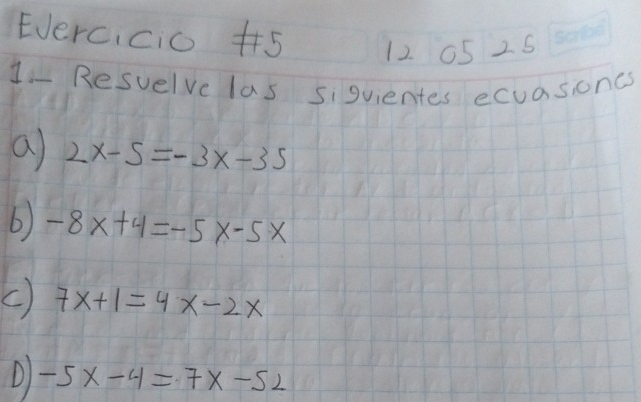 Ejercicio #5 12 05 25 Scribe
1.- Resuelve las siguientes ecuasiones
a) 2x-5=-3x-35
b) -8x+4=-5x-5x
c) 7x+1=4x-2x
D) -5x-4=7x-52